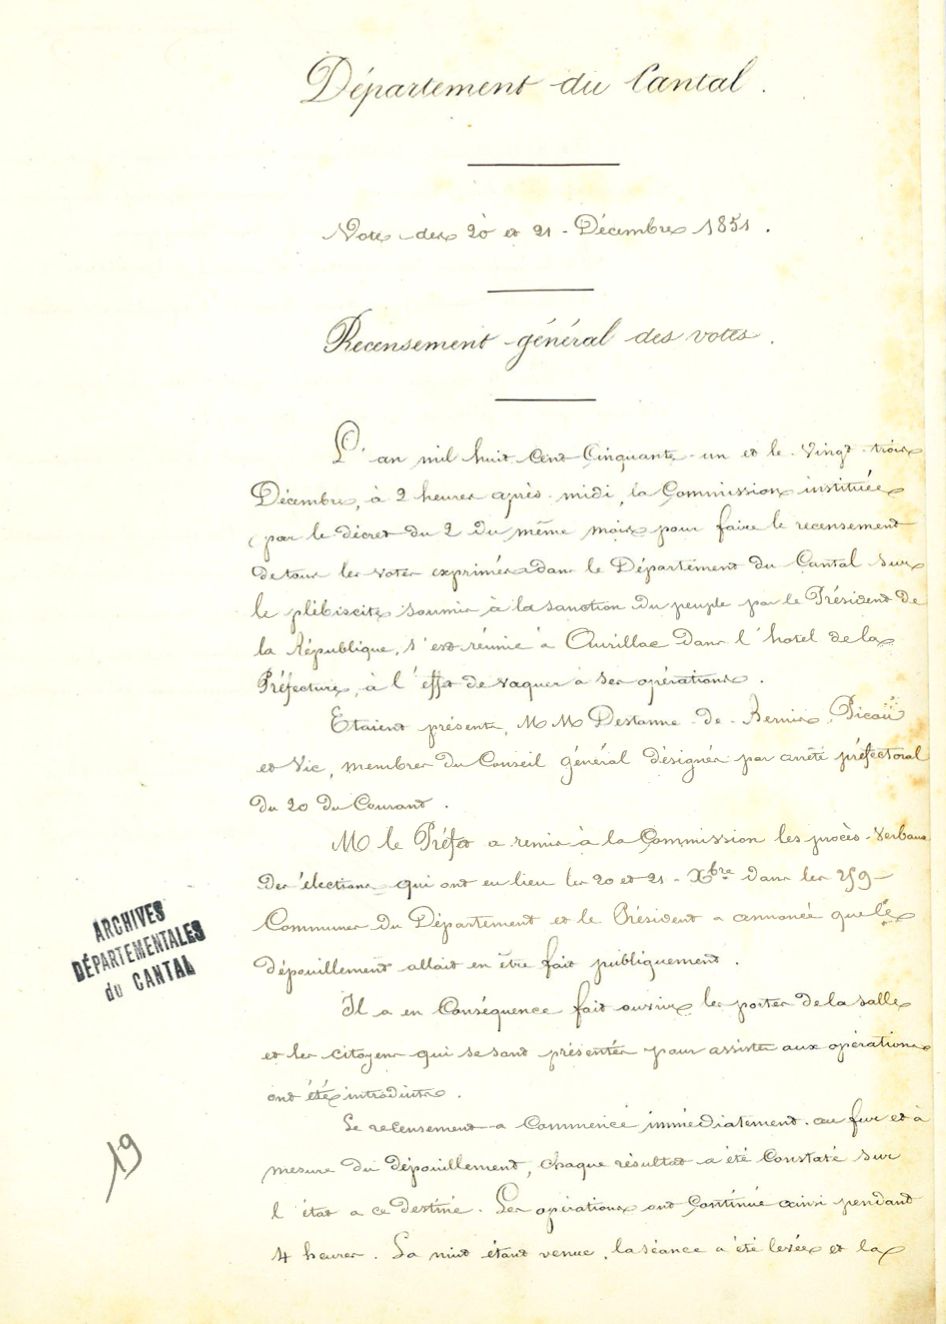 Département du Cantal.
Votes des 20 et 21 Décembre 1851.
Recensement général des votes.
L'an mil huit cent cinquante-un et le vingt-trois
Décembre, à 2 heures après-midi, la Commission instituée
par le décret du 2 du même mois pour faire le recensement
de tous les votes exprimés dans le Département du Cantal sur
le plébiscite soumis à la sanction du peuple par le Président de
la République, s'est réunie à Aurillac dans l'hotel de la
Préfecture, à l'effet de vaquer à ses opérations.
Etaient présents, MM Destanne de Bernis, Picou
et Vic, membres du Conseil général désignés par arrêté préfectoral
du 20 du Courant.
M le Préfet a remis à la Commission les procès-verbaux
des élections qui ont eu lieu les 20 et 21 Xbre dans les 259
Communes du Département et le Président a annoncé que le
dépouillement allait en être fait publiquement.
Il a en Conséquence fait ouvrir les portes de la salle
et les citoyens qui se sont présentés pour assister aux opérations
ont été introduits.
Le recensement a Commencé immédiatement. au fur et à
mesure du dépouillement, chaque résultat a été Constaté sur
l'état a ce destiné. Les opérations ont Continué ainsi pendant
4 heures. La nuit étant venue, la séance a été levée et la
ARCHIVES
DÉPARTEMENTALES
du CANTAL
19